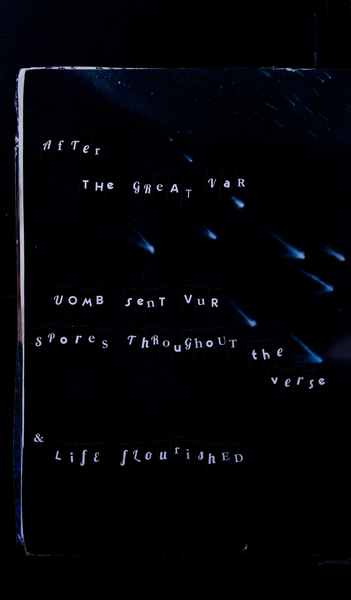 AfTer
THe GReAT VaR
VOMB senT VuR
sPores ThRouGhoUT the
verse
&
LifE fLourishED